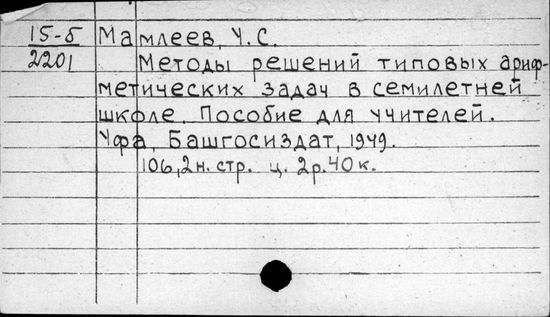 15-5 Мамлеев, Ч.С.
2201 Методы решений типовых ариф-
метических задач в семилетней
школе. Пособие для учителей.
Уфа, Башгосиздат, 1949.
106,2н. стр. ц. 2р.40к.